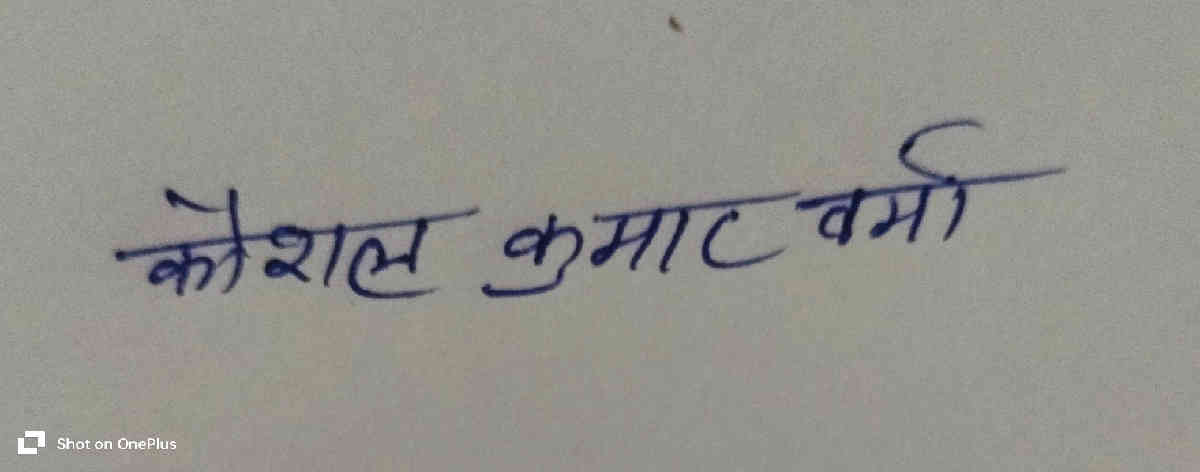 कौशल कुमार वर्मा
Shot on OnePlus